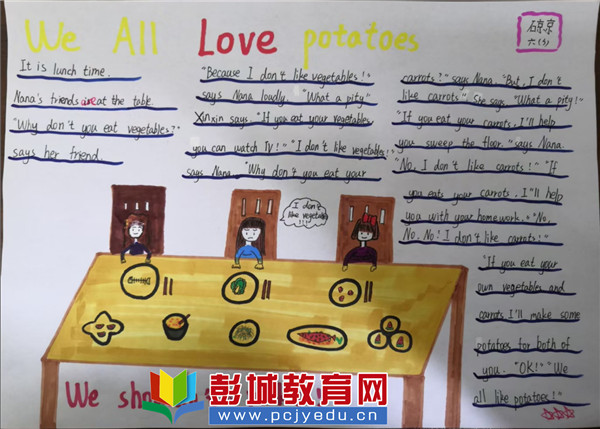 We All Love potatoes
It is lunch time.
Nana's friends are at the table.
"Why don't you eat vegetables?"
says her friend.
"Because I don't like vegetables!"
says Nana loudly. "What a pity"
Xinxin says. "If you eat your vegetables
you can watch TV!" "I don't like vegetables!"
says Nana. "Why don't you eat your
carrots?" says Nana. "But, I don't
like carrots" She says. "What a pity!"
"If you eat your carrots. I'll help
you sweep the floor." says Nana.
"No, I don't like carrots!" "If
you eats your carrots. I'll help
you with your homework." "No,
No. No! I don't like carrots!"
"If you eat your
own vegetables and
carrots I'll make some
potatoes for both of
you. "OK!" "We
all like potatoes!"
I don't
like vegetables
!!!
We
彭城教育网
www.pcjyedu.cn